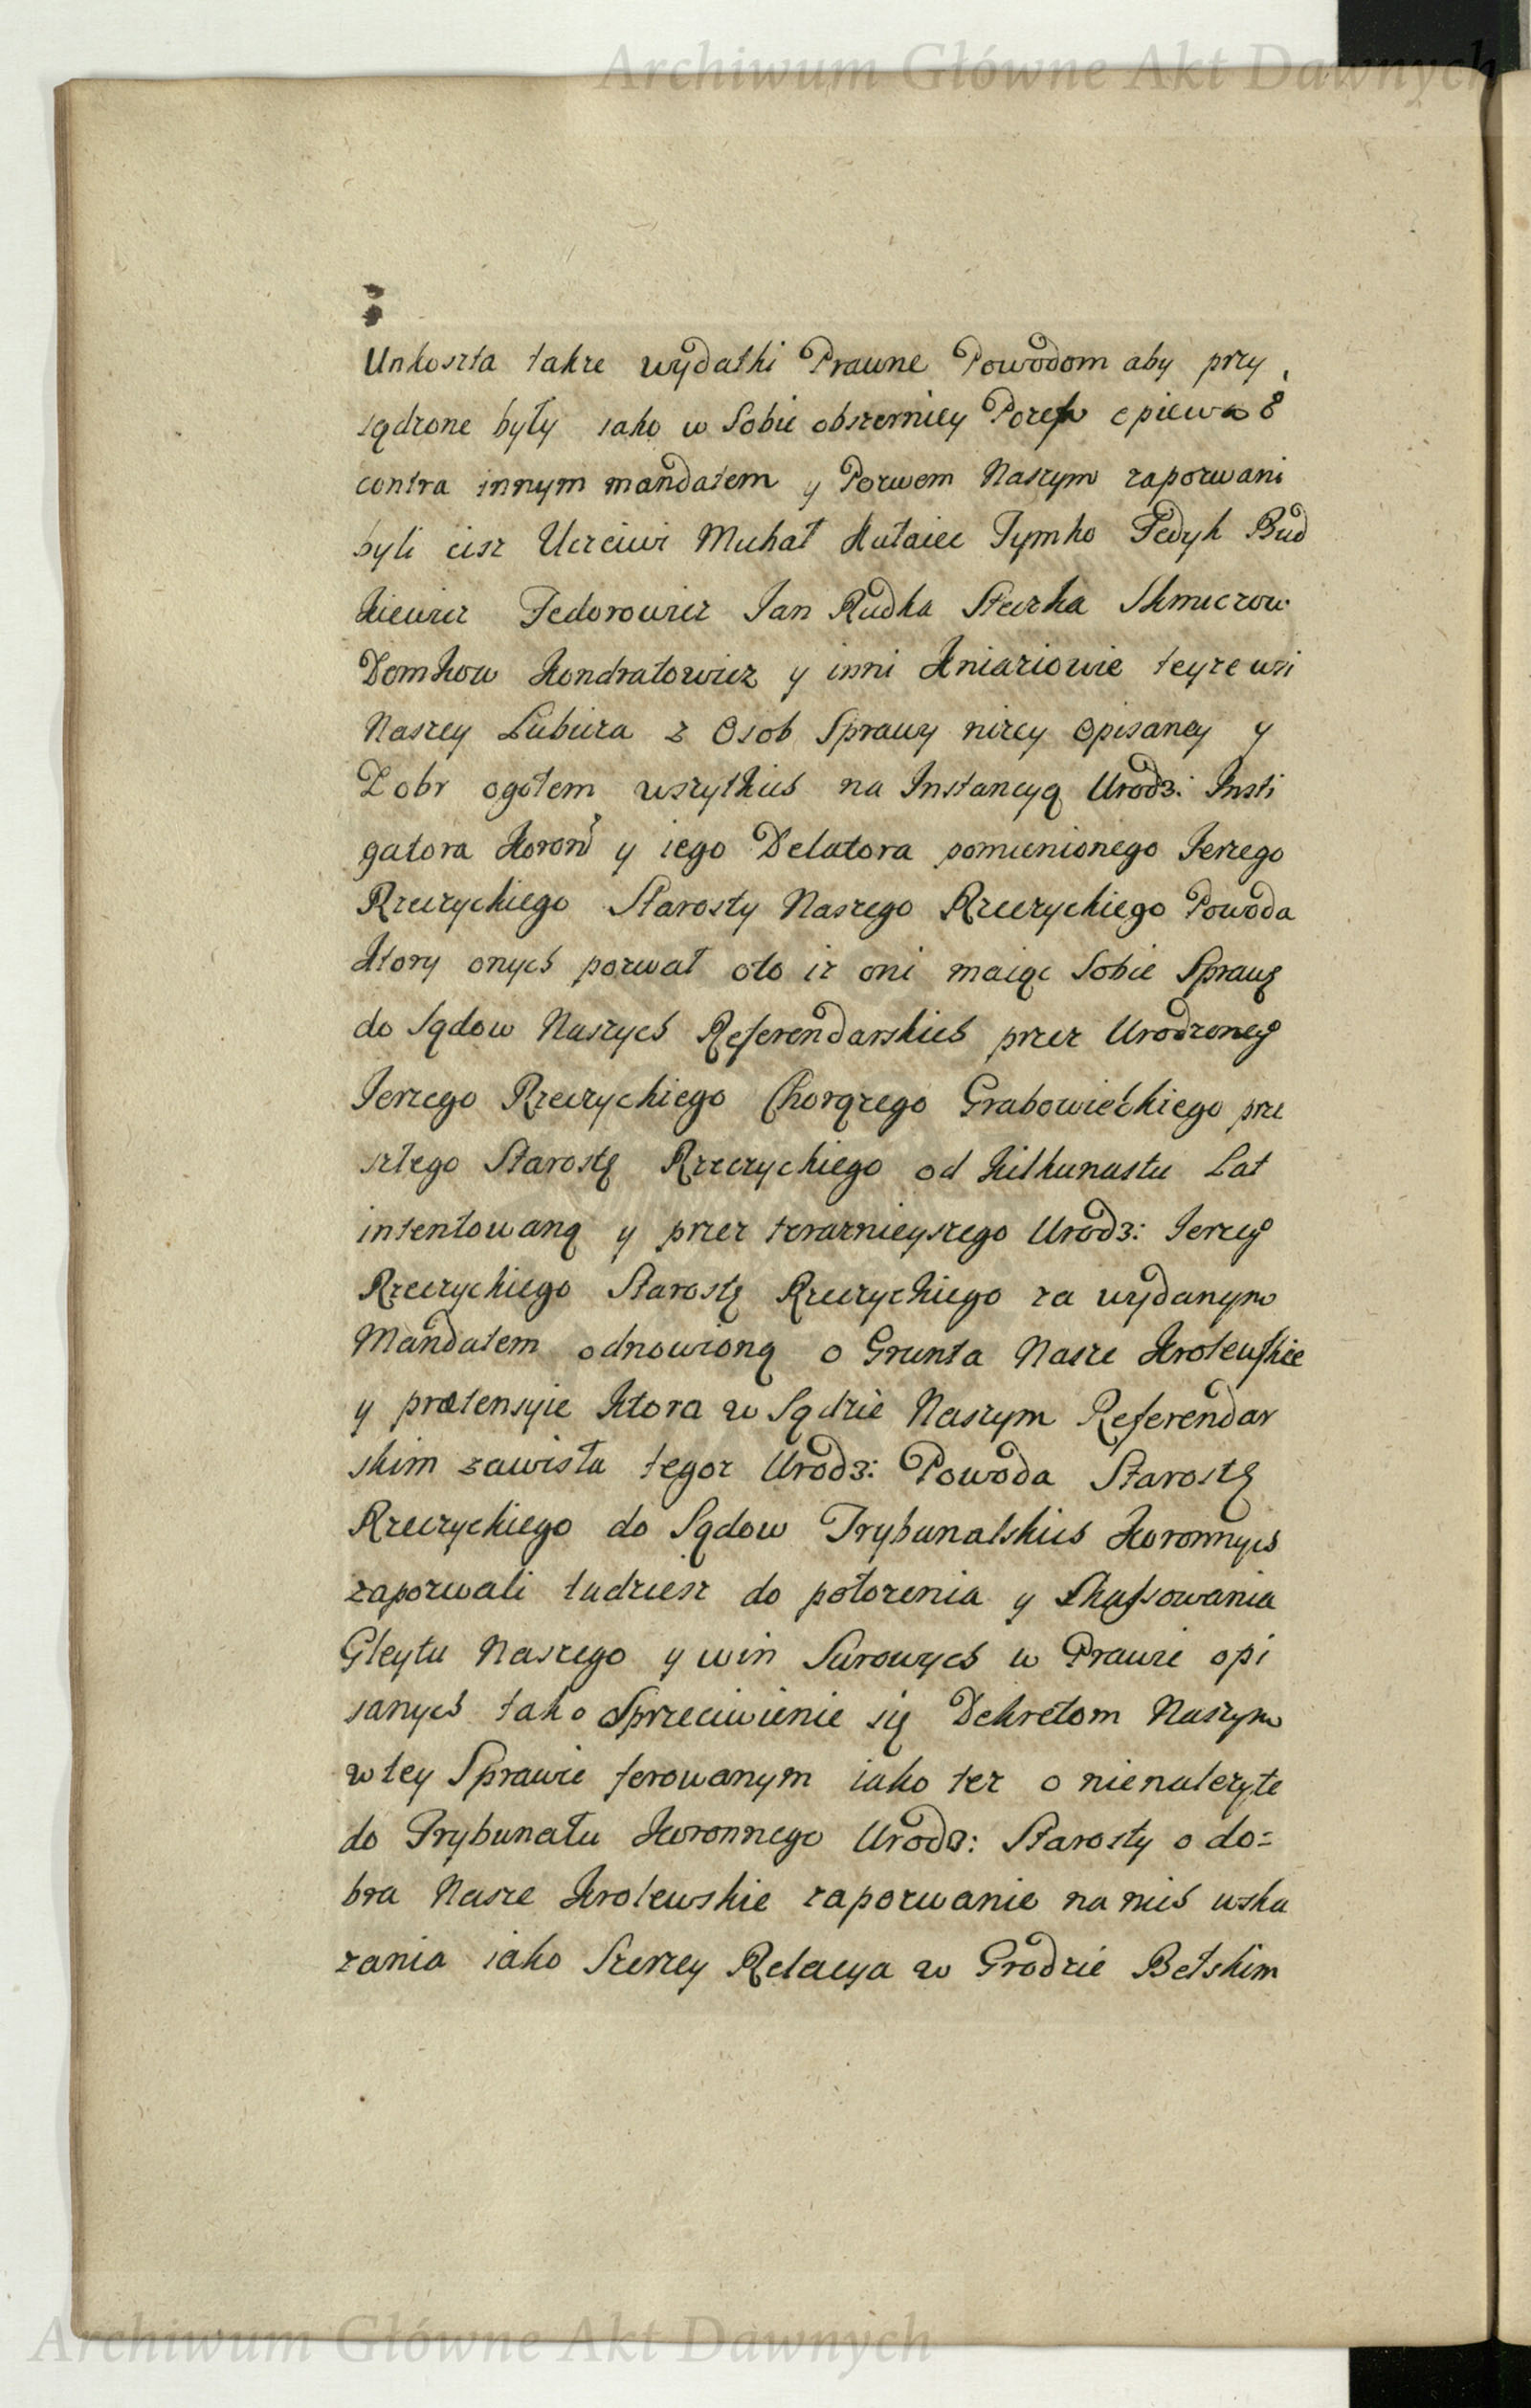 Archiwum Główne Akt Dawnych
Unkoszta takze wydatki Prawne Powodom aby przy
sądzone były iako w Sobie obszerniey Pozew opiewa
contra innym mandatem y Pozwem Naszym zapozwani
byli cisz Uczciwi Michał Hułaiec Tymko Fedyk Bud
kiewicz Fedorowicz Jan Rudka Steczka
Domkow Kondratowicz y inni Kniaziowie teyze wsi
Naszey Lubicza z Osob Sprawy nizey Opisaney y
Dobr ogołem wszytkich na Instancyą Urodz: Insti
gatora Koron y iego Delatora pomienionego Jerzego
Rzeczyckiego Starosty Naszego Rzeczyckiego Powoda
Ktory onych pozwał oto iz oni maiąc Sobie Sprawę
do Sądow Naszych Referendarskich przez Urodzonego
Jerzego Rzeczyckiego Chorązego Grabowieckiego prze
szłego Starostę Rzeczyckiego od Kilkunastu Lat
intentowaną y przez teraznieyszego Urodz: Jerzego
Rzeczyckiego Starostę Rzeczyckiego za wydanym
Mandatem odnowioną o Grunta Nasze Krolewskie
y prætensyie Ktora w Sądzie Naszym Referendar
skim zawisła tegoz Urodz: Powoda Starostę
Rzeczyckiego do Sądow Trybunalskich Koronnych
zapozwali tudziesz do połozenia y Skassowania
Gleytu Naszego y win Surowych w Prawie opi
sanych tako Sprzeciwienie się Dekretom Naszym
w tey Sprawie ferowanym iako tez o nienalezyte
do Trybunału Koronnego Urodz: Starosty o do=
bra Nasze Krolewskie zapozwanie na nich wska
zania iako Szerzey Relacya w Grodzie Bełskim
Archiwum Główne Akt Dawnych